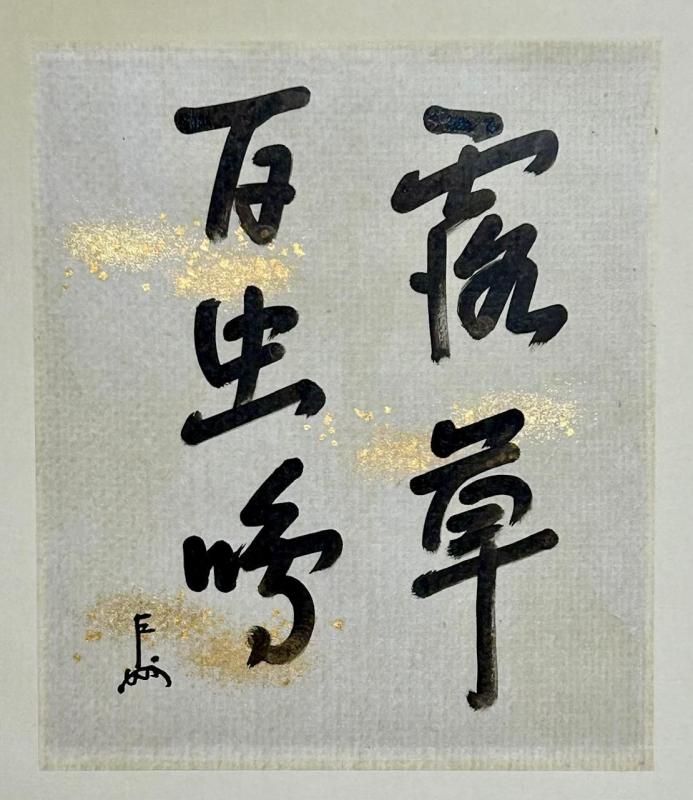 露草
百虫鳴